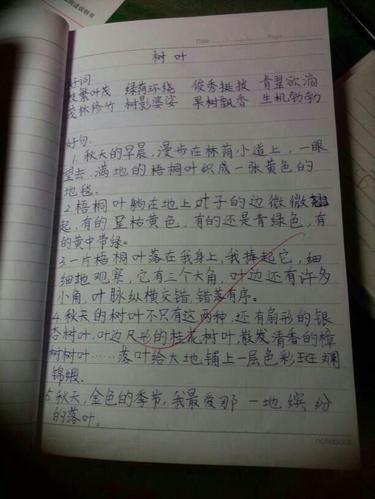 树叶
Date
Page
好词
枝繁叶茂 绿荫环绕 俊秀挺拔 青翠欲滴
茂林修竹 树影婆娑 果树飘香 生机勃勃
好句
1.秋天的早晨,漫步在林荫小道上,一眼
望去,满地的梧桐叶织成一张黄色的
地毯。
2.梧桐叶躺在地上,叶子的边微微翘
起,有的呈枯黄色,有的还是青绿色,有
的黄中带绿。
3.一片梧桐叶落在我身上,我捧起它,细
细地观察,它有三个大角,叶边还有许多
小角,叶脉纵横交错,错落有序。
4.秋天的树叶不只有这两种,还有扇形的银
杏树叶,叶边尺形的桂花树叶,散发清香的樟
树树叶……落叶给大地铺上一层色彩斑斓
锦缎。
5.秋天,金色的季节,我最爱那一地缤纷
的落叶。
notebook